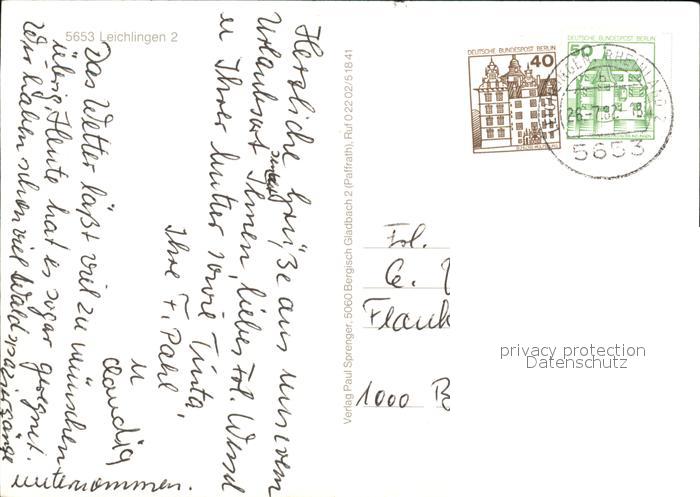 5653 Leichlingen 2
Herzliche Grüße aus unserem
Urlaubsort sendet Ihnen, liebes Frl. Wessel
u Ihrer Mutter sowie Tinta,
Ihre F. Pahl
u Claudia
Das Wetter läßt viel zu wünschen
übrig, Heute hat es sogar geregnet.
Wir haben schon viel Waldspaziergänge
unternommen.
Verlag Paul Sprenger, 5060 Bergisch Gladbach 2 (Paffrath), Ruf 0 22 02/5 18 41
DEUTSCHE BUNDESPOST BERLIN
40
DEUTSCHE BUNDESPOST BERLIN
50
5653
Frl.
1000 B
privacy protection
Datenschutz